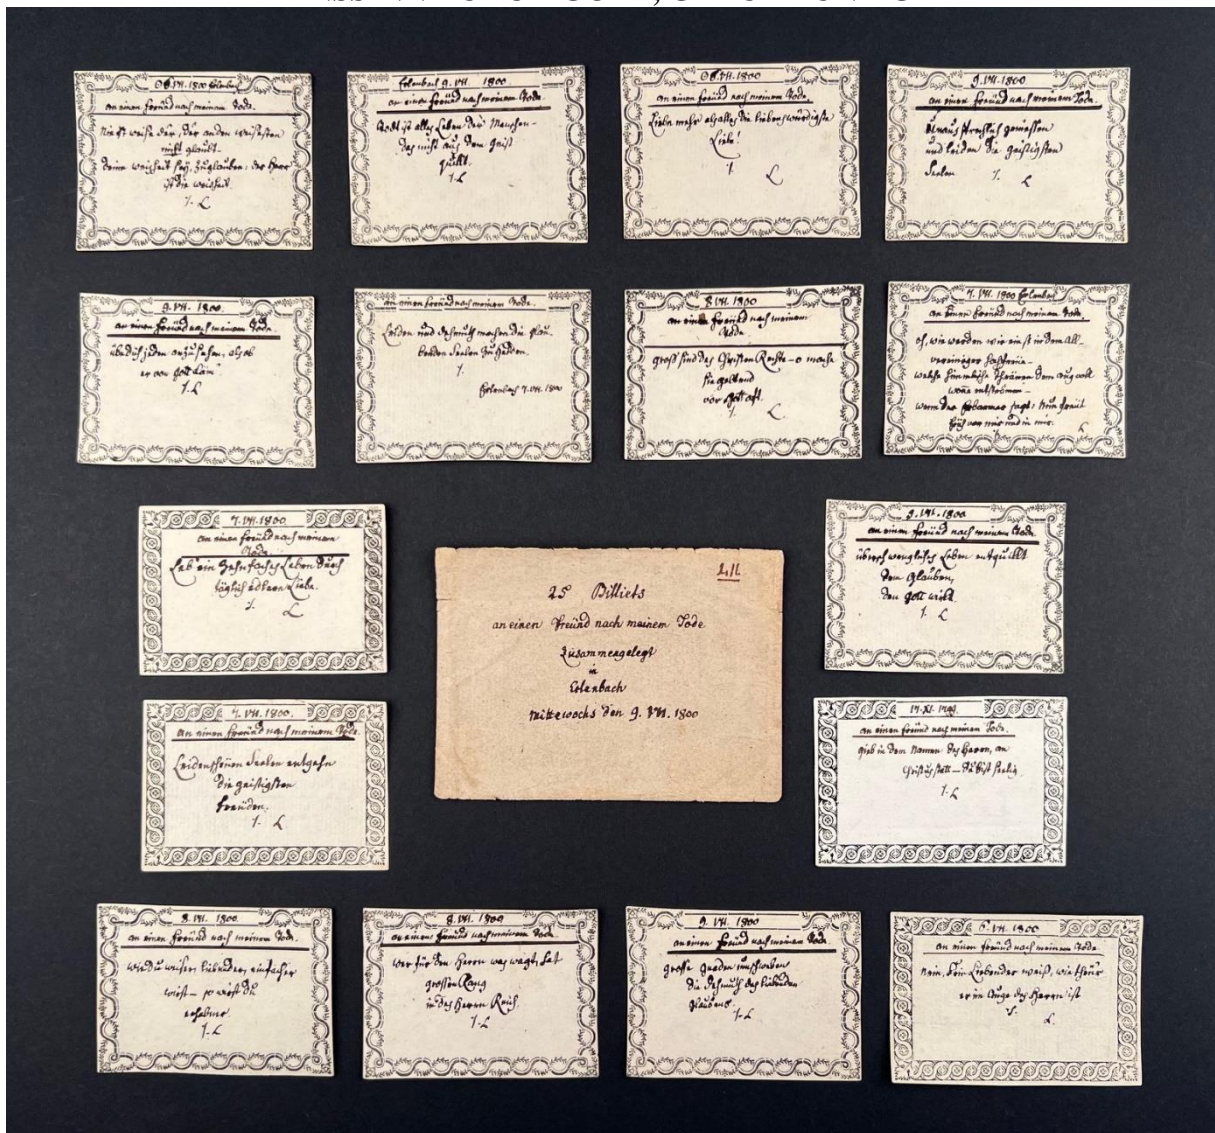 08. VII. 1800 Erlenbach
an einen Freünd nach meinem Tode.
Nie ist weise der, der an den weisesten
nicht glaubt.
Deine weisheit sey, zuglauben: der Herr
ist die weisheit.
L
Erlenbach 9. VII. 1800
an einen Freünd nach meinem Tode.
Todt ist alles Leben der Menschen –
das nicht aus dem Geist
quillt.
L
08. VII. 1800
an einen Freünd nach meinem Tode.
Liebe mehr als alles die liebenswürdigste
Liebe!
L
9. VII. 1800
an einen Freünd nach meinem Tode.
Unaussprechlich geniessen
und leiden die geistigsten
Seelen
L
9. VII. 1800.
an einen Freünd nach meinem Tode
übe dich jeden anzusehen, als ob
er von Gott käm
L
an einen Freünd nach meinem Tode.
Leiden und Dehmuth machen die glau-
benden Seelen zu Helden.
Erlenbach 7. VII. 1800
8. VII. 1800
an einen Freünd nach meinem
Tode
groß sind des Christen Rechte – o mache
sie geltend
vor Gott oft.
L.
7. VII. 1800 Erlenbach
an einen Freünd nach meinem Tode.
o, wie werden wir einst in dem All-
vereiniger
welche himmlische Thränen dem aug voll
wonne entströmen –
wenn der Erbarmer sagt: Nun freüt
Eüch vor mir und in mir.
L
7. VII. 1800.
an einen Freünd nach meinem
Tode.
Leb' ein zehnfaches Leben durch
täglich edlere Liebe.
L
25 Billiets
an einen Freünd nach meinem Tode
Zusammengelegt
in
Erlenbach
Mittewochs den 9. VII. 1800
9. VII. 1800
an einen Freünd nach meinem Tode.
überschwengliches Leben entquillt
dem Glauben,
den Gott wirkt.
L
7. VII. 1800.
an einen Freünd nach meinem Tode.
Leidenscheüen Seelen entgehn
die geistigsten
Freüden.
L
an einen Freünd nach meinem Tode.
gieb in dem Namen des Herrn, an
Christus statt – Du bist seelig.
L
8. VII. 1800
an einen Freünd nach meinem Tode.
wie du weiser, liebender, einfacher
wirst – so wirst du
erhabner.
L
8. VII. 1800
an einen Freünd nach meinem Tode.
wer für den Herrn was wagt, hat
grossen Rang
in des Herrn Reich.
L
9. VII. 1800
an einen Freünd nach meinem Tode
grosse Gnaden umschweben
die Dehmuth des liebenden
Glaubens.
L
VII. 1800
an einen Freünd nach meinem Tode
Nein, kein Liebender weiß, wie theür
er im Auge des Herrn ist
L.